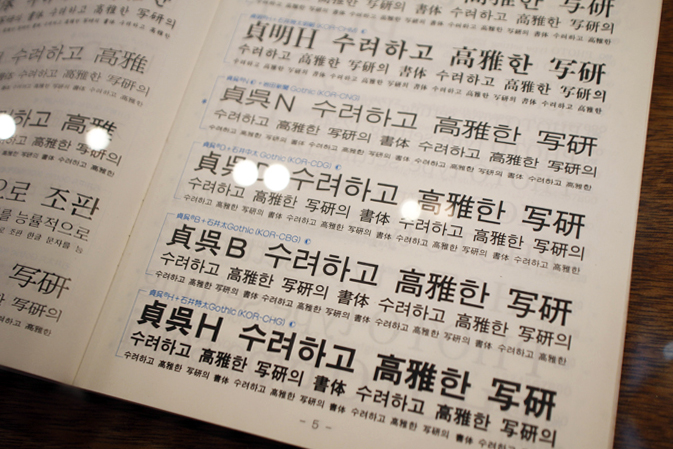 高雅
高雅
으로 조판
를 능률적으로
로 조판 한글 문자를 능
写研
写研의
高雅한 写研
수려하고 高雅한 写研의
貞明H 수려하고 高雅한 写研
수려하고 高雅한 写研의 書体 수려하고 高雅한 写研의
수려하고 高雅한 写研의 書体 수려하고 高雅한 写研의 書体 수려하고 高雅한
Gothic (KOR-CNG)
貞呉N 수려하고 高雅한 写研
수려하고 高雅한 写研의 書体 수려하고 高雅한 写研의
수려하고 高雅한 写研의 書体 수려하고 高雅한 写研의 書体 수려하고 高雅한
貞呉D+石井太Gothic (KOR-CDG)
貞呉 수려하고 高雅한 写研
수려하고 高雅한 写研의 書体 수려하고 高雅한 写研의
수려하고 高雅한 写研의 書体 수려하고 高雅한 写研의 書体 수려하고 高雅한
貞呉B+石井太Gothic (KOR-CBG)
貞呉B 수려하고 高雅한 写研
수려하고 高雅한 写研의 書体 수려하고 高雅한 写研의
수려하고 高雅한 写研의 書体 수려하고 高雅한 写研의 書体 수려하고 高雅한
貞呉H+石井特太Gothic (KOR-CHG)
貞呉H 수려하고 高雅한 写研
수려하고 高雅한 写研의 書体 수려하고 高雅한 写研의
수려하고 高雅한 写研의 書体 수려하고 高雅한 写研의 書体 수려하고 高雅한
- 5 -